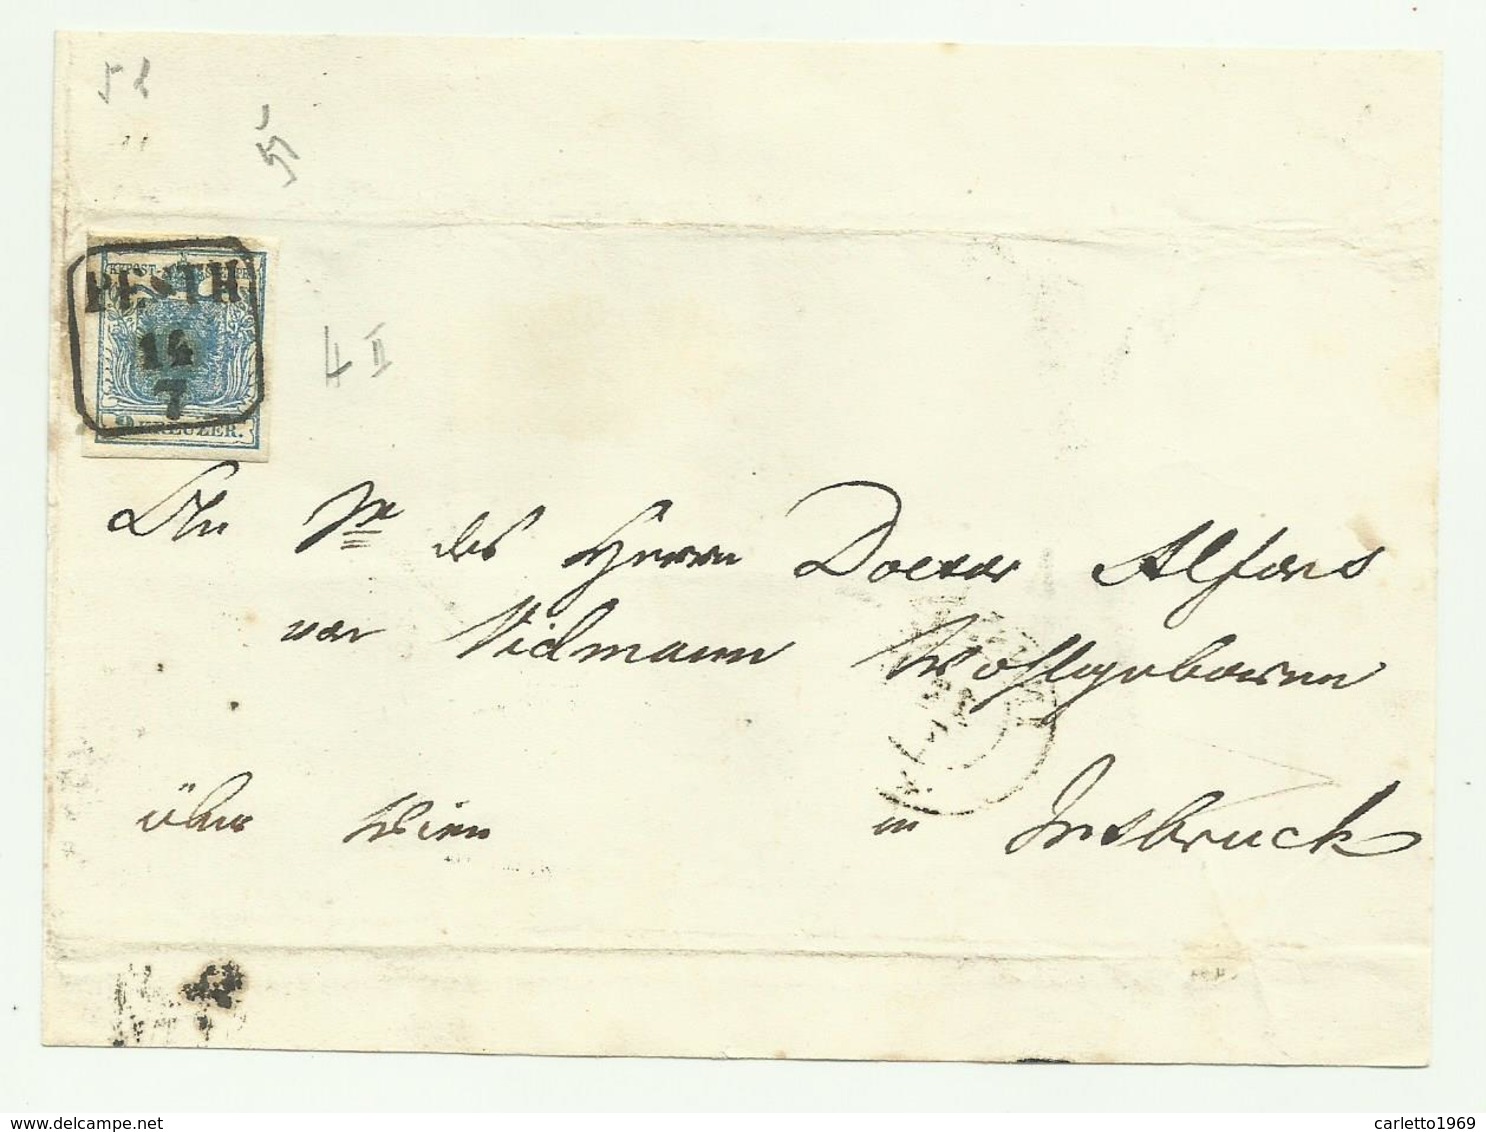 51
5
K.K.POST-STEMPEL
PESTH
14
7
9 KREUZER.
4 II
An Sr des Herrn Doctor Alfons
von Widmann Wohlgeboren
über Wien in Insbruck
www.delcampe.net
carletto1969